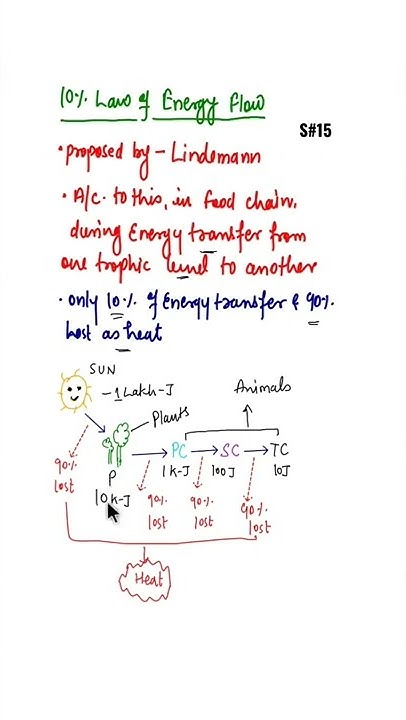 10% Law of Energy Flow
S#15
• proposed by - Lindemann
• A/C. to this, in food chain,
during Energy transfer from
one trophic level to another
• only 10% of Energy transfer & 90%
lost as heat
SUN
- 1 Lakh-J
Animals
Plants
PC → SC → TC
1 K-J 100J 10J
P
10 K-J
90% lost
90% lost
90% lost
90% lost
Heat